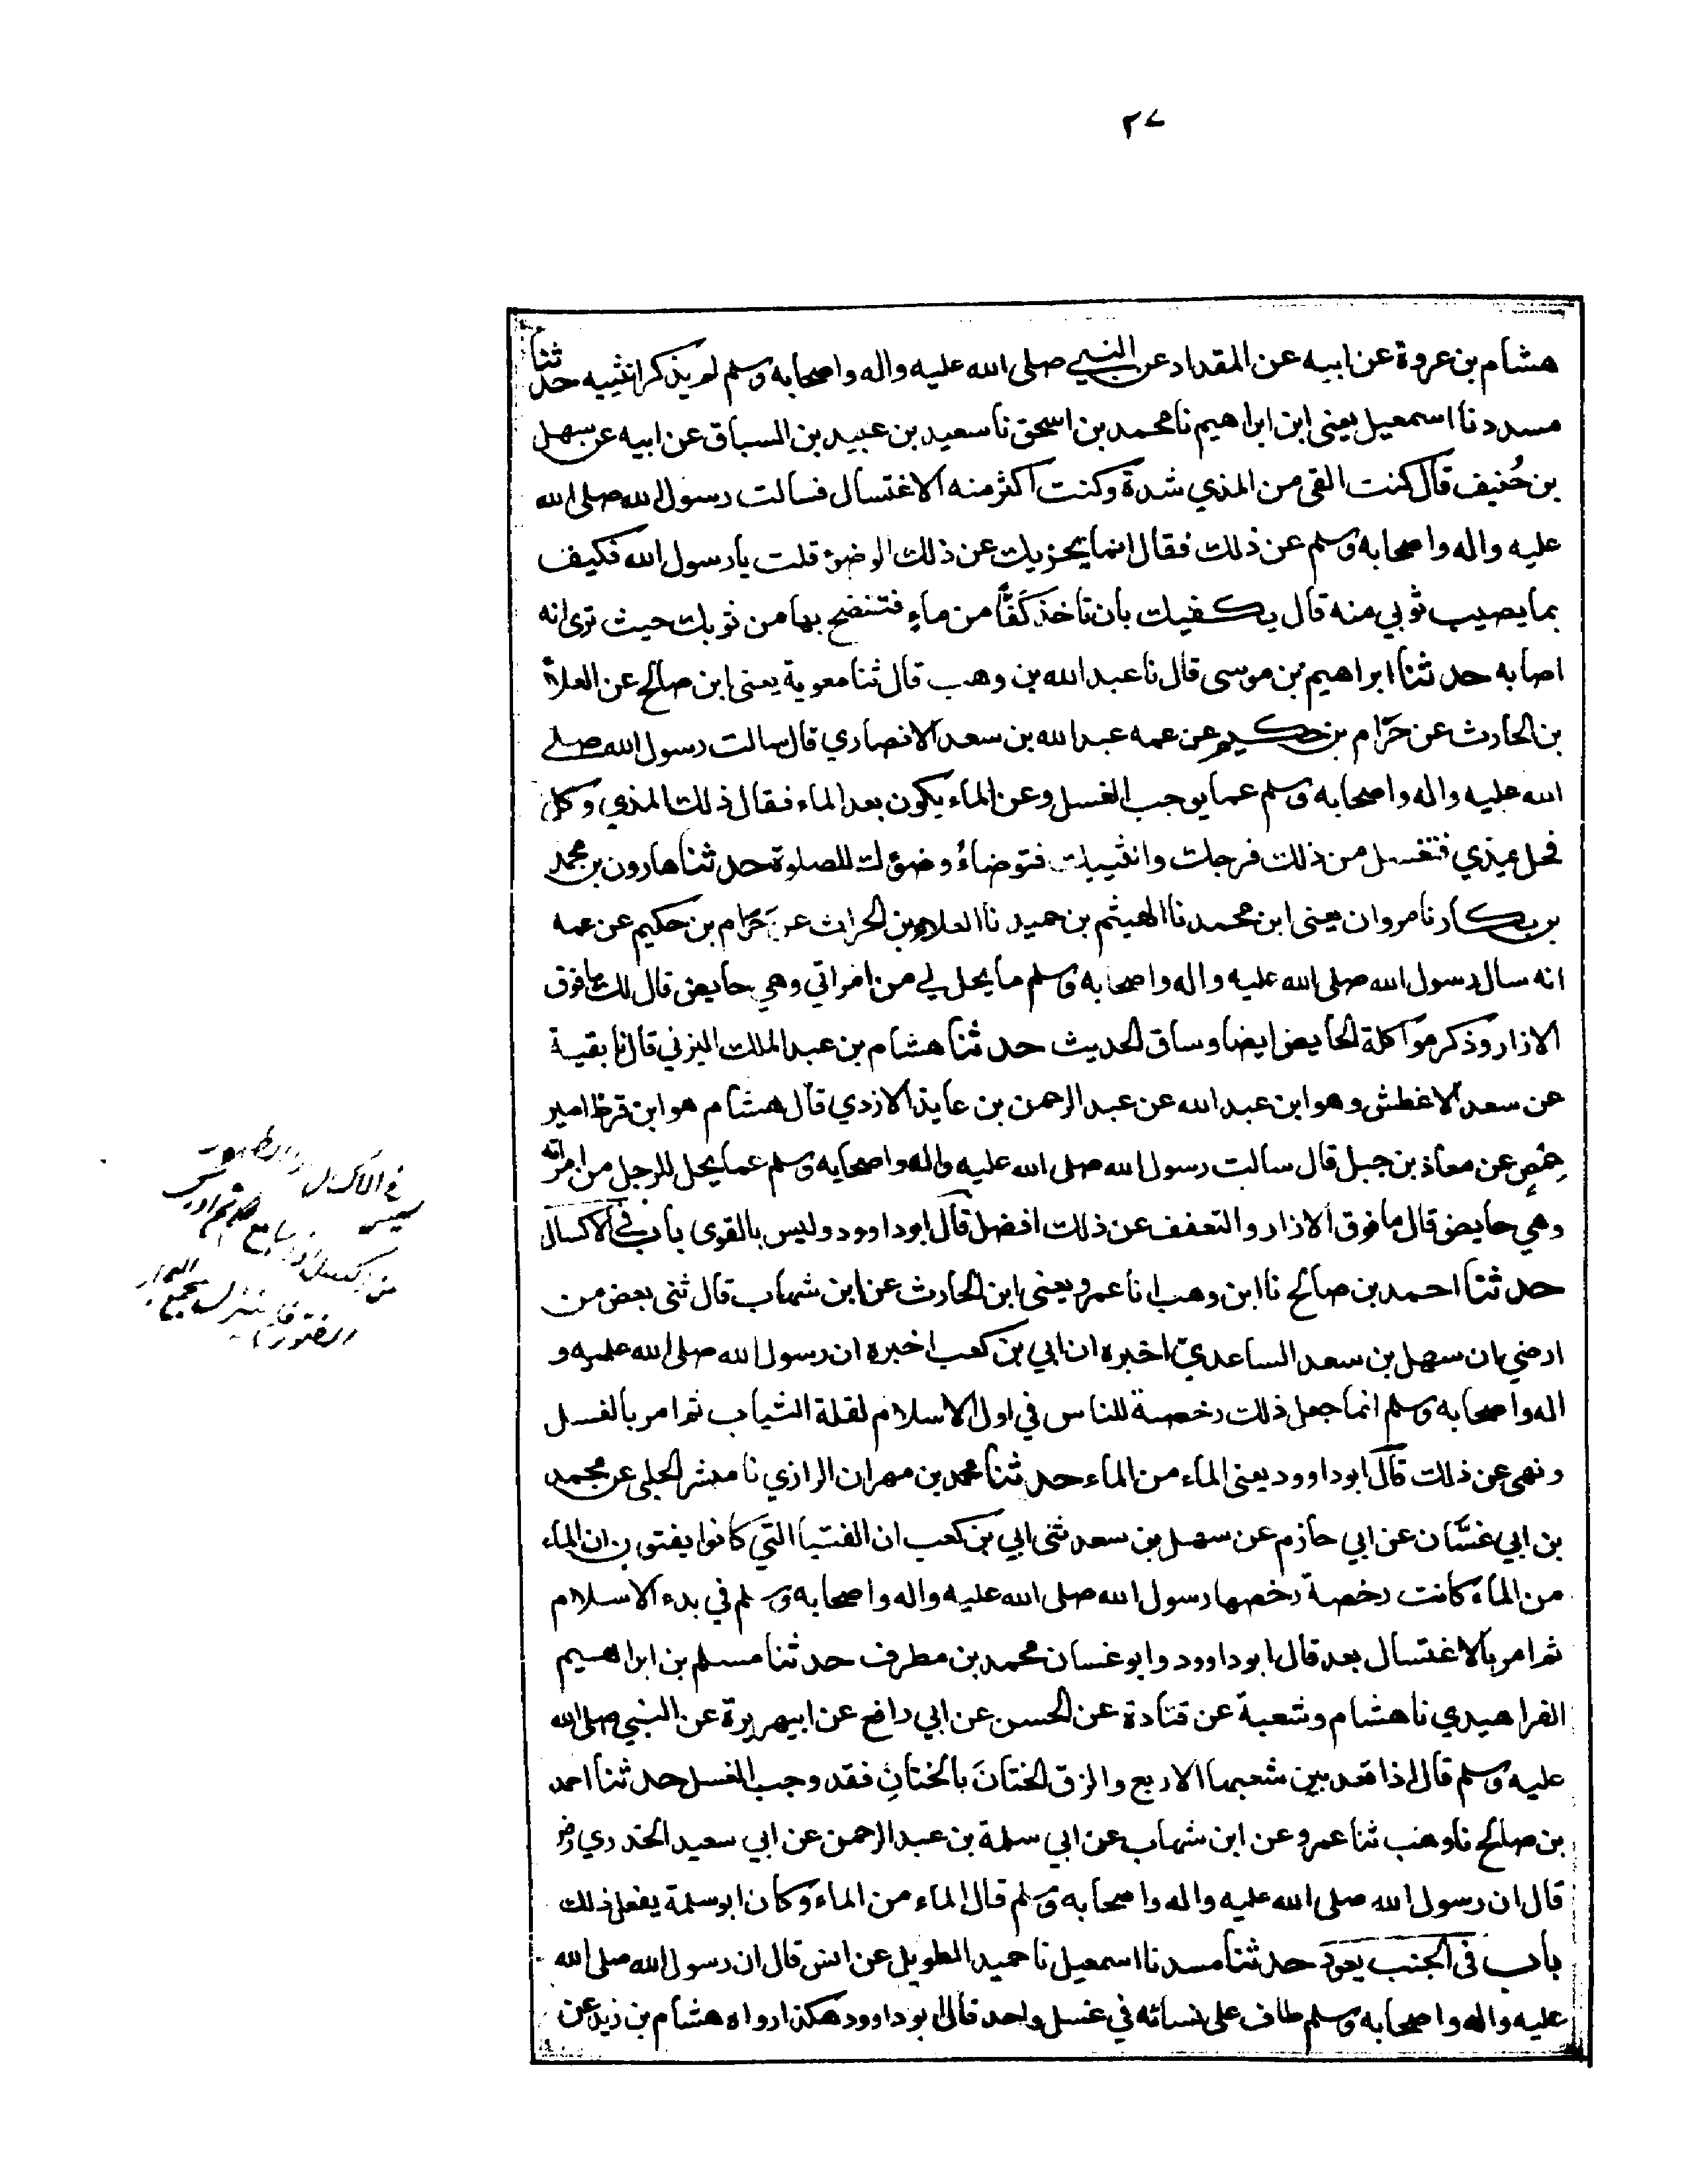 ٢٧
هشام بن عروة عن ابيه عن المقداد عن النبي صلى الله عليه واله واصحابه وسلم لم يذكر انثييه حدثنا
مسدد نا اسمعيل يعنى ابن ابراهيم نا محمد بن اسحق نا سعيد بن عبيد بن السباق عن ابيه عن سهل
بن حُنيف قال كنت القى من المذي شدة وكنت اكثر منه الاغتسال فسالت رسول الله صلى الله
عليه واله واصحابه وسلم عن ذلك فقال انما يجزيك عن ذلك الوضوء قلت يا رسول الله فكيف
بما يصيب ثوبي منه قال يكفيك بان تاخذ كَفًّا من ماءٍ فتنضح بها من ثوبك حيث ترى انه
اصابه حدثنا ابراهيم بن موسى قال نا عبد الله بن وهب قال ثنا معوية يعنى ابن صالح عن العلاء
بن الحارث عن حَرَام بن حكيم عن عمه عبد الله بن سعد الانصاري قال سالت رسول الله صلى
الله عليه واله واصحابه وسلم عما يوجب الغسل وعن الماء يكون بعد الماء فقال ذلك المذي وكل
فحل يمذي فتغسل من ذلك فرجك وانثييك فتوضاءُ وضوءك للصلوة حدثنا هارون بن محمد
بن بكار نا مروان يعنى ابن محمد نا الهيثم بن حميد نا العلاء بن الحراث عن حَرَام بن حكيم عن عمه
انه سال رسول الله صلى الله عليه واله واصحابه وسلم ما يحل لي من امراتي وهي حايض قال لك ما فوق
الازار وذكر مواكلة الحايض ايضا وساق الحديث حدثنا هشام بن عبد الملك اليزني قال نا بقية
عن سعد الاغطش وهو ابن عبد الله عن عبد الرحمن بن عايذ الازدي قال هشام هو ابن قرظ امير
حِمْصٍ عن معاذ بن جبل قال سالت رسول الله صلى الله عليه واله واصحابه وسلم عما يحل للرجل من امراته
وهي حايض قال ما فوق الازار والتعفف عن ذلك افضل قال ابو داوود وليس بالقوى باب في الاكسال
حدثنا احمد بن صالح نا ابن وهب انا عمرو يعنى ابن الحارث عن ابن شهاب قال ثنى بعض من
ارضي ان سهل بن سعد الساعدي اخبره ان ابي بن كعب اخبره ان رسول الله صلى الله عليه و
اله واصحابه وسلم انما جعل ذلك رخصة للناس في اول الاسلام لقلة الثياب ثم امر بالغسل
ونهى عن ذلك قال ابو داوود يعنى الماء من الماء حدثنا محمد بن مهران الرازي نا مبشر الحلبى عن محمد
بن ابي غسّان عن ابي حازم عن سهل بن سعد ثنى ابي بن كعب ان الفتيا التي كانوا يفتون ان الماء
من الماء كانت رخصة رخصها رسول الله صلى الله عليه واله واصحابه وسلم في بدء الاسلام
ثم امر بالاغتسال بعد قال ابو داوود وابو غسان محمد بن مطرف حدثنا مسلم بن ابراهيم
الفراهيدي نا هشام وشعبة عن قتادة عن الحسن عن ابي رافع عن ابيهريرة عن النبي صلى الله
عليه وسلم قال اذا قعد بين شعبها الاربع والزق الختانَ بالختانِ فقد وجب الغسل حدثنا احمد
بن صالح نا وهب ثنا عمرو عن ابن شهاب عن ابي سلمة بن عبد الرحمن عن ابي سعيد الخدري
قال ان رسول الله صلى الله عليه واله واصحابه وسلم قال الماء من الماء وكان ابو سلمة يفعل ذلك
باب في الجنب يعود حدثنا مسدد نا اسمعيل نا حميد الطويل عن انس قال ان رسول الله صلى الله
عليه واله واصحابه وسلم طاف على نسائه في غسل واحد قال ابو داوود هكذا رواه هشام بن زيد عن